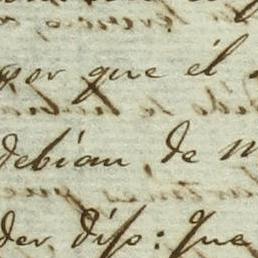 por que él
debian de
der dijo: Que